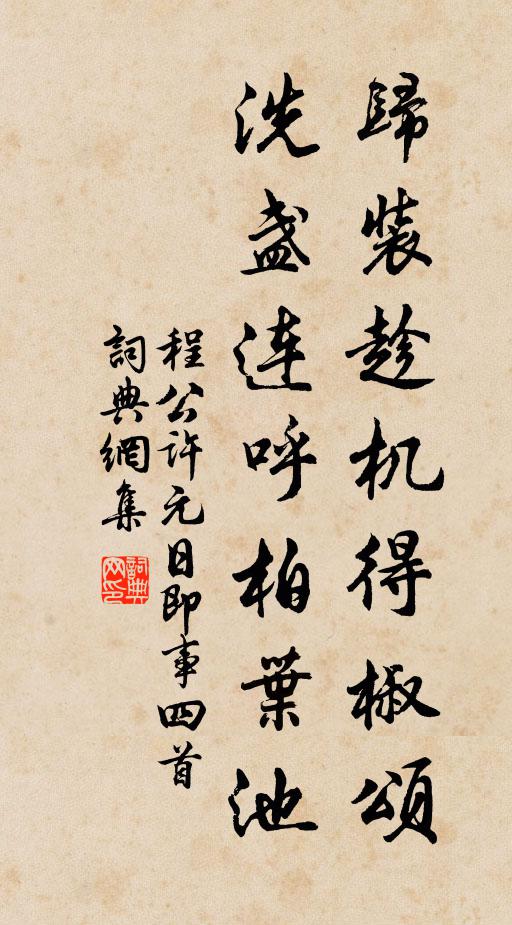 歸裝趁机得椒頌
洗盞連呼柏葉池
程公許元日即事四首
詞典網集
詞典网印